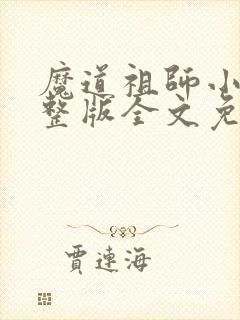 魔道祖師小
整版全文免
賈連海